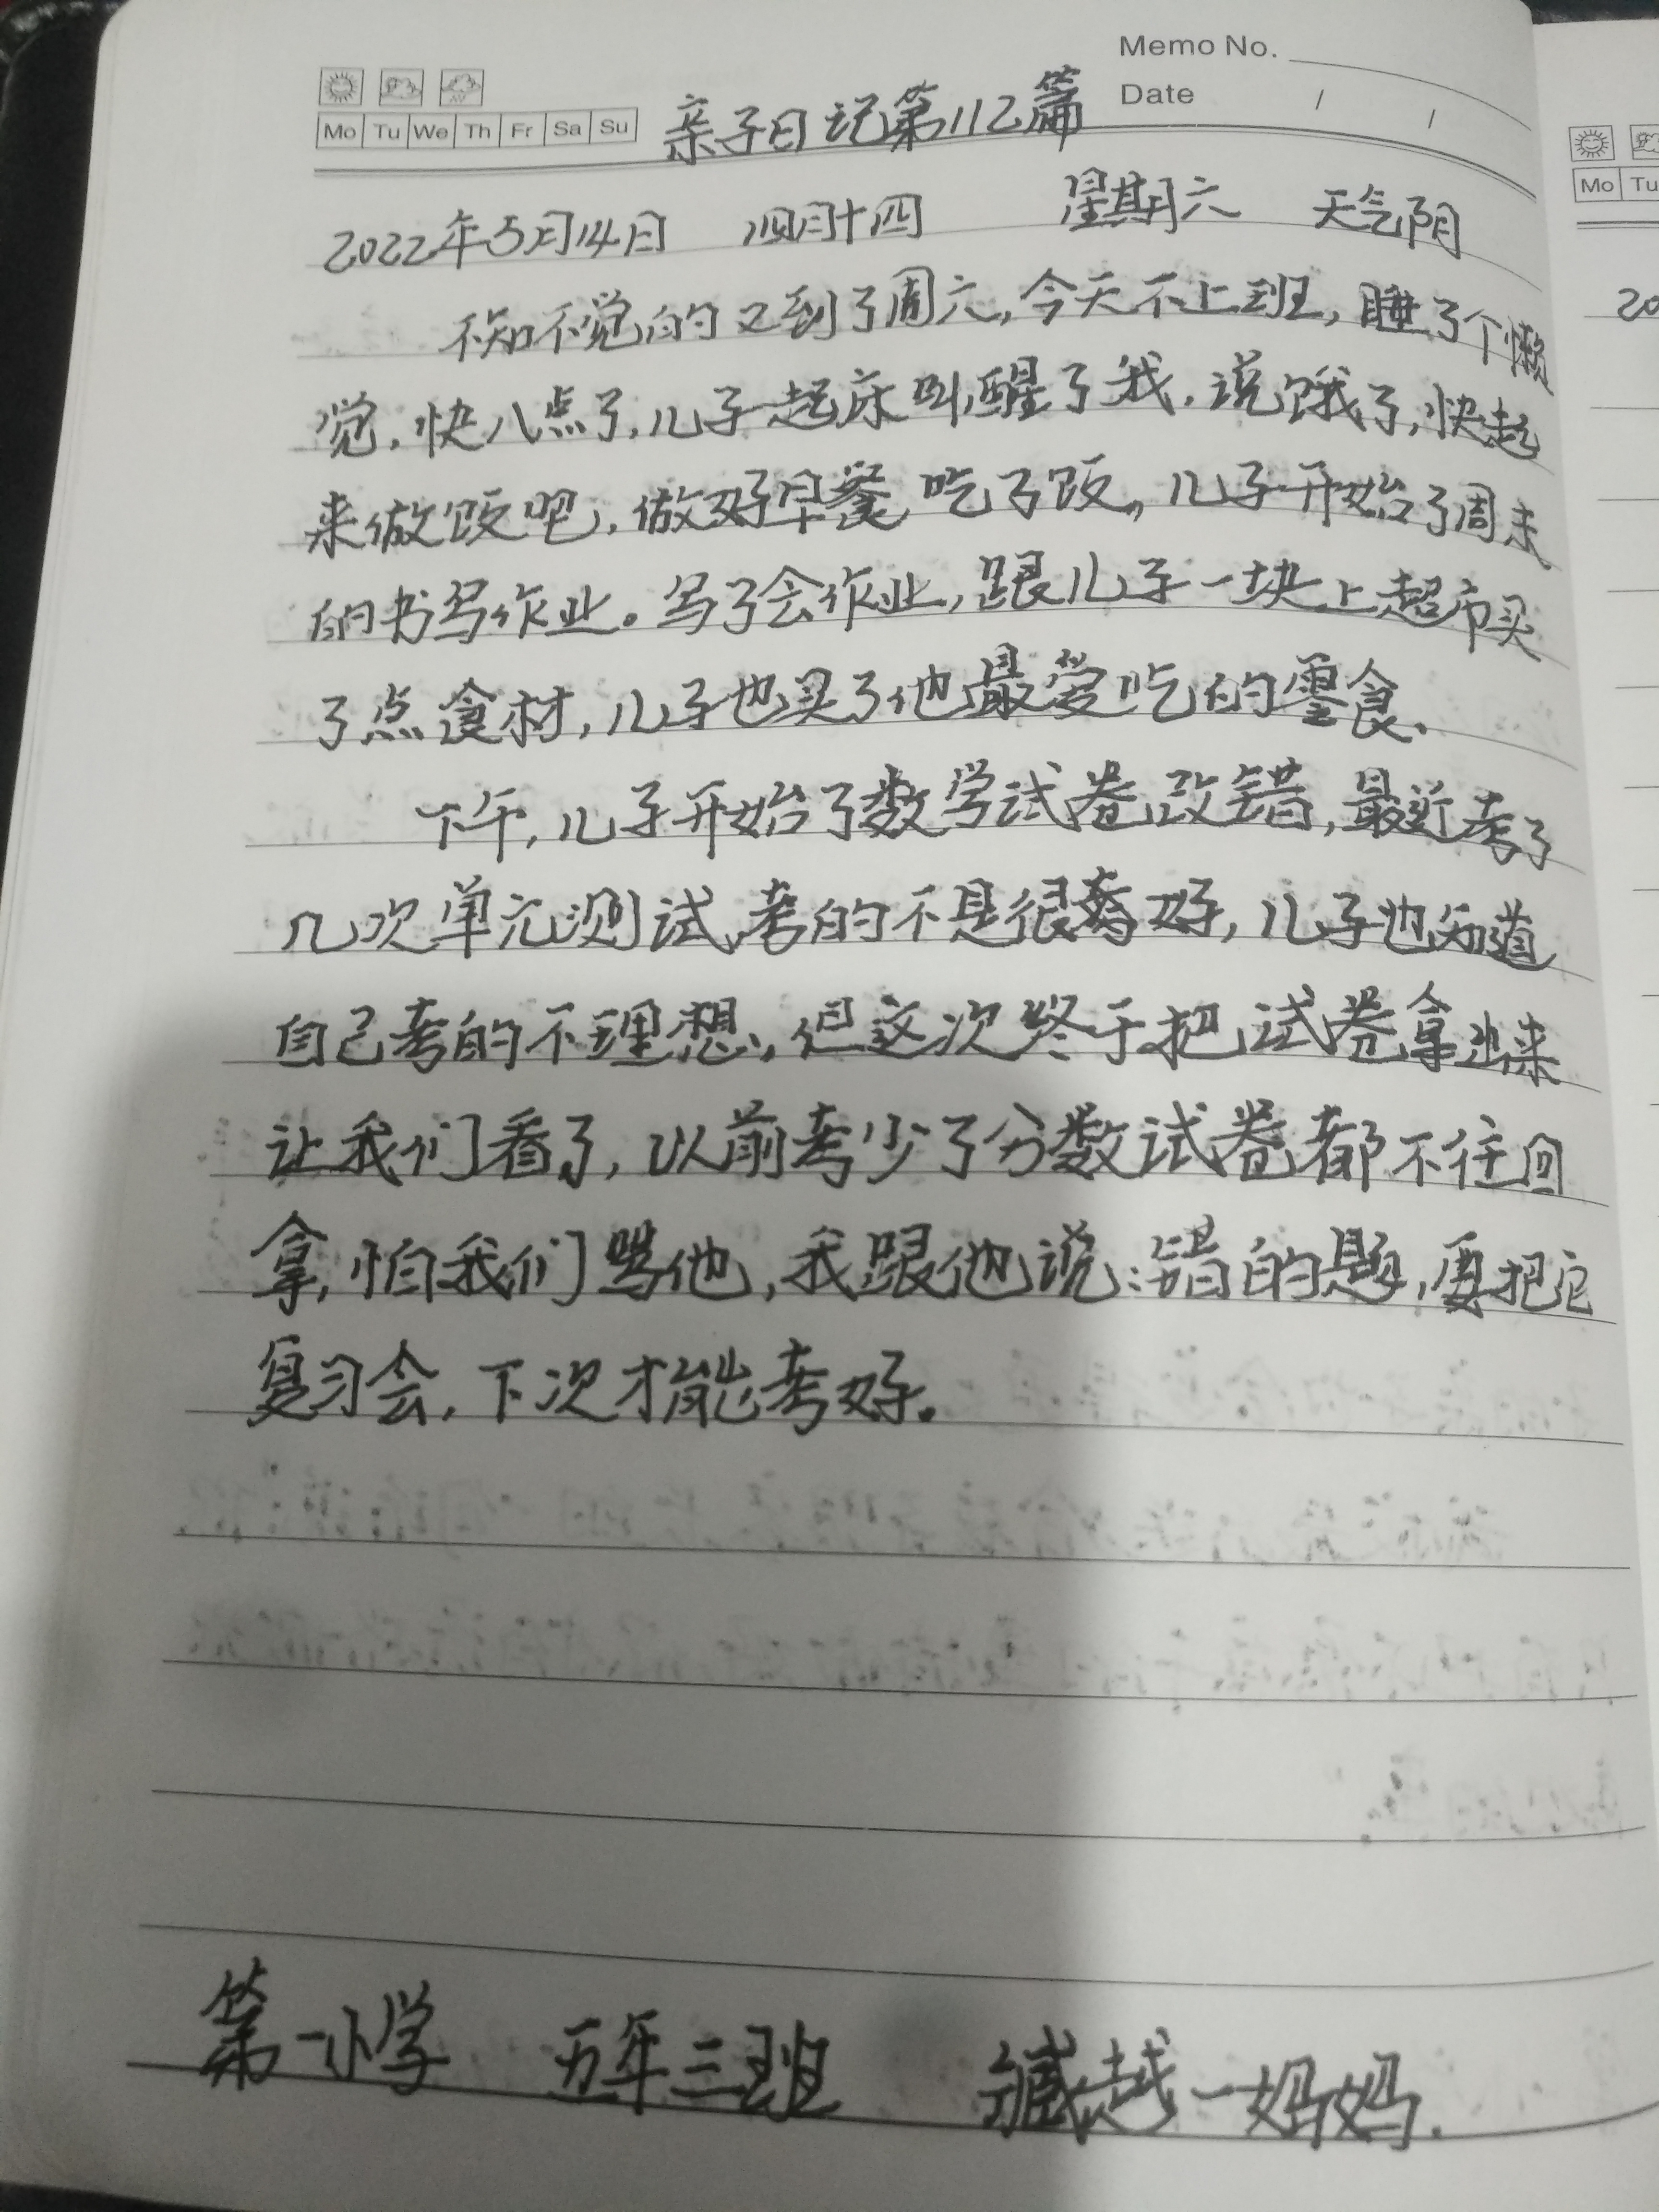 Memo No.
Date / /
Mo Tu We Th Fr Sa Su
亲子日记第112篇
2022年5月14日 四月十四 星期六 天气阴
不知不觉的又到了周六,今天不上班,睡了个懒
觉,快八点了,儿子起床叫醒了我,说饿了,快起
来做饭吧,做好早餐,吃了饭,儿子开始了周末
的书写作业。写了会作业,跟儿子一块上超市买
了点食材,儿子也买了他最爱吃的零食、
下午,儿子开始了数学试卷改错,最近考了
几次单元测试,考的不是很好,儿子也知道
自己考的不理想,但这次终于把试卷拿出来
让我们看了,以前考少了分数试卷都不往回
拿,怕我们骂他,我跟他说:错的题,要把它
复习会,下次才能考好。
第一小学 五年三班 臧越一妈妈.
Mo Tu
20